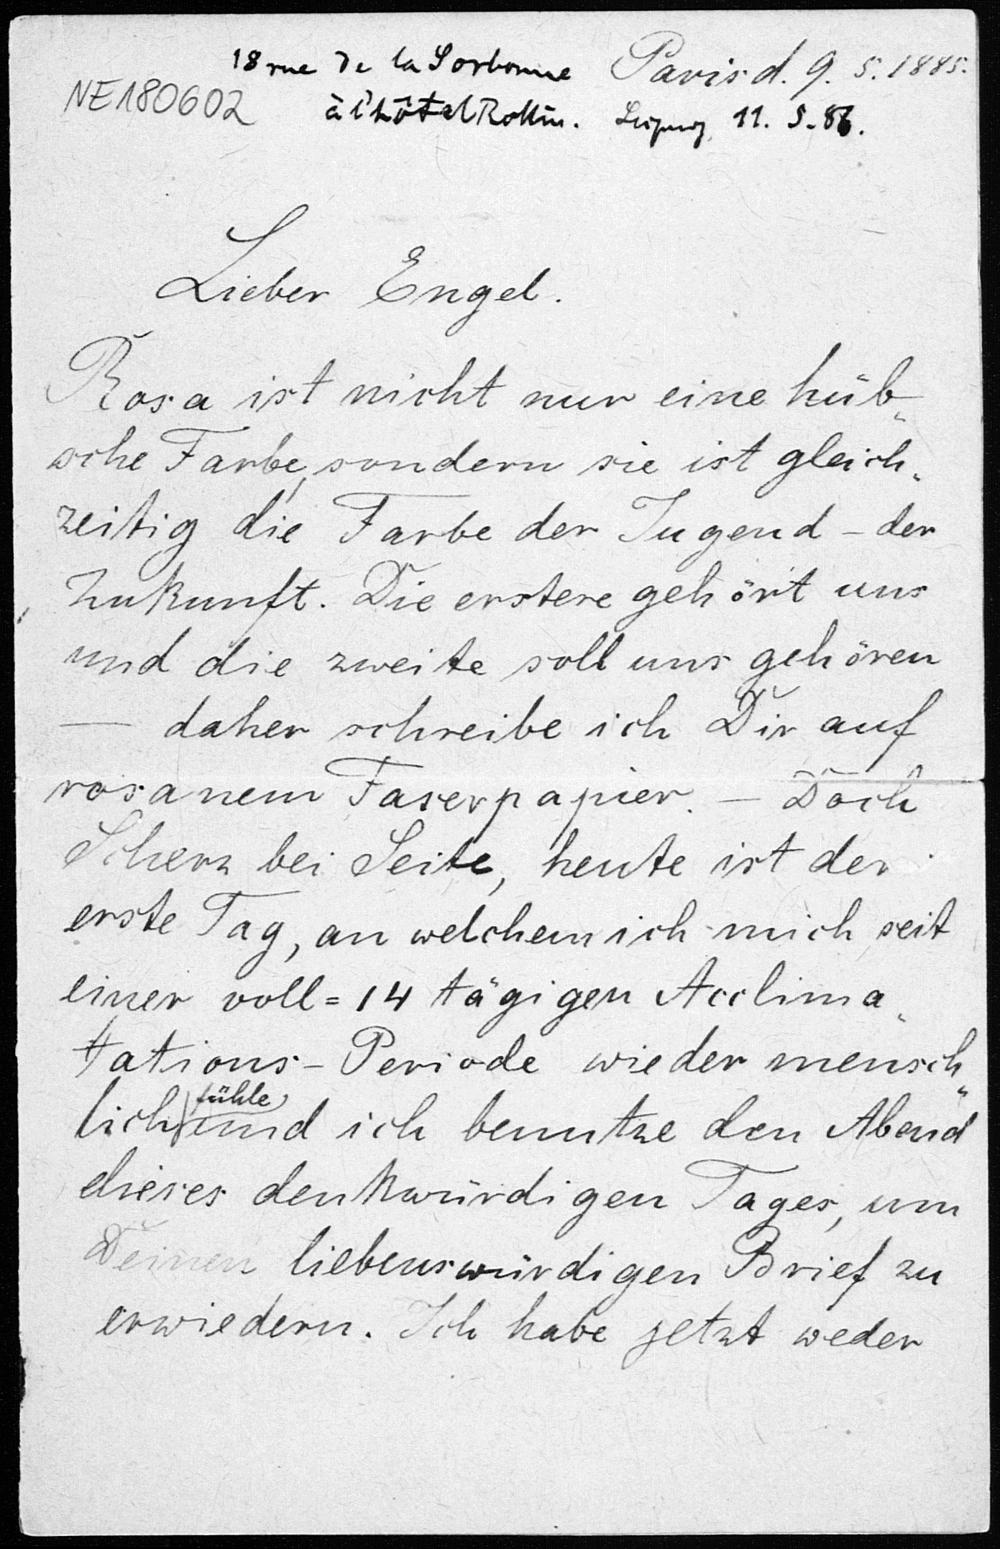 18 rue de la Sorbonne Paris d. 9. 5. 1885.
NE180602
à l'hôtel Rollin. Leipzig 11. 5. 86.
Lieber Engel.
Rosa ist nicht nur eine hüb-
sche Farbe, sondern sie ist gleich-
zeitig die Farbe der Jugend – der
Zukunft. Die erstere gehört uns
und die zweite soll uns gehören
— daher schreibe ich Dir auf
rosanem Faserpapier. – Doch
Scherz bei Seite, heute ist der
erste Tag, an welchem ich mich seit
einer voll=14 tägigen Acclima-
tations-Periode wieder mensch-
fühle,
lich und ich benutze den Abend
dieses denkwürdigen Tages, um
Deinen liebenswürdigen Brief zu
erwiedern. Ich habe jetzt weder